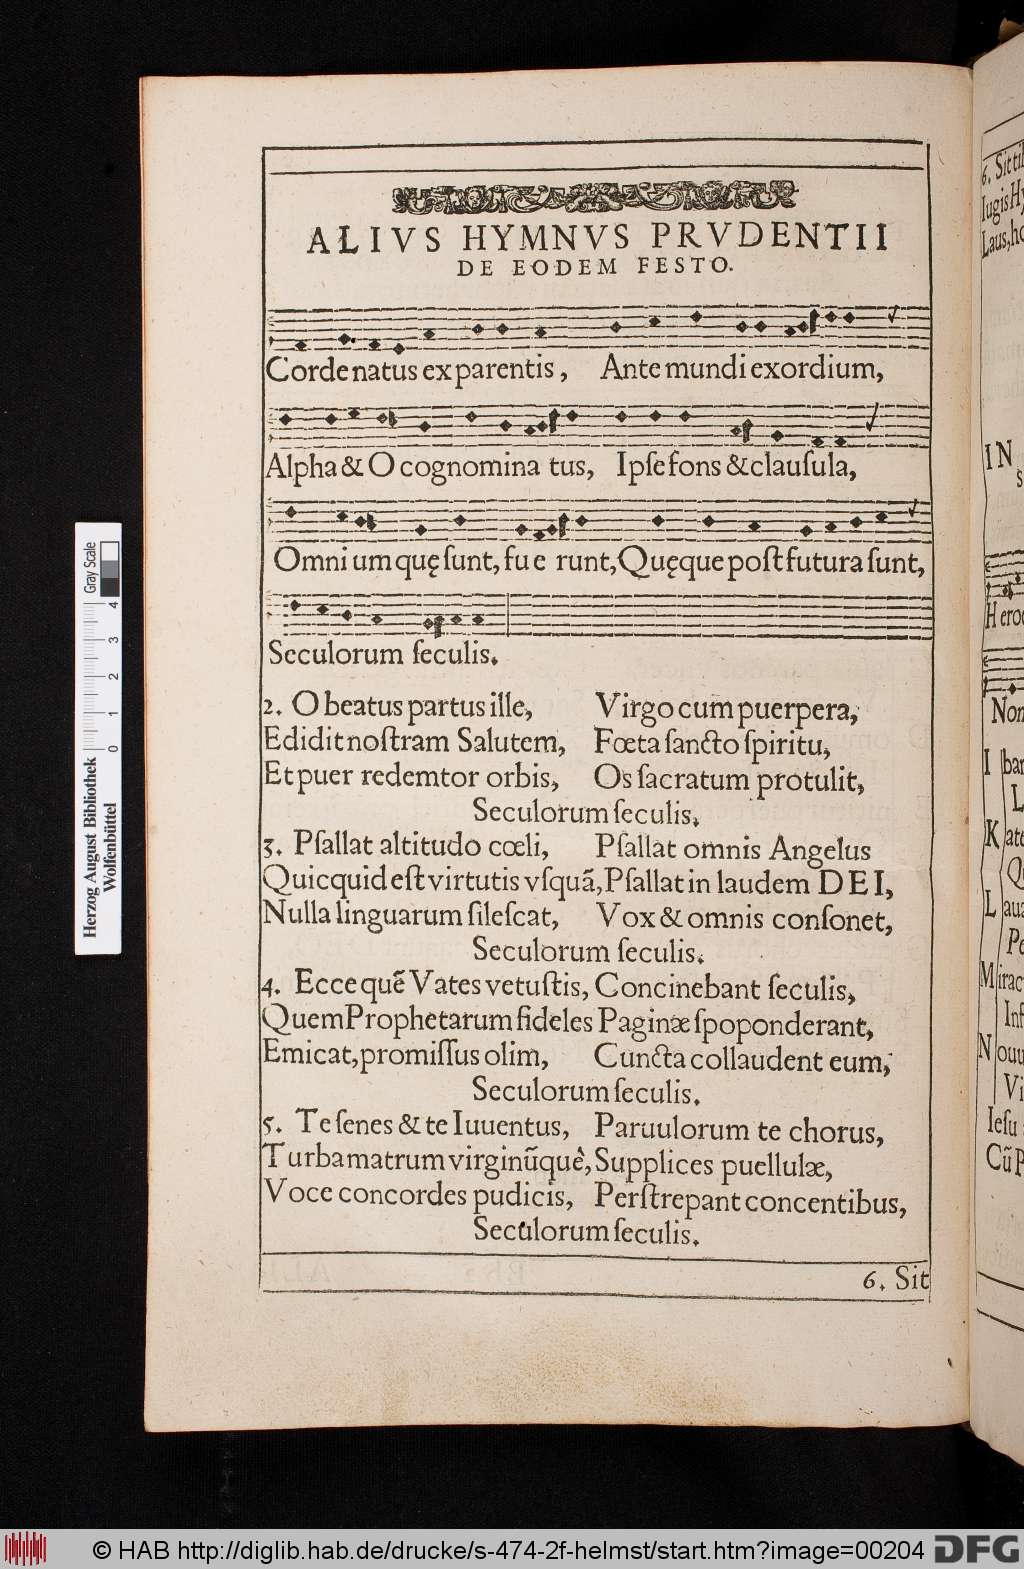 ALIVS HYMNVS PRVDENTII
DE EODEM FESTO.
Corde natus ex parentis, Ante mundi exordium,
Alpha & O cognomina tus, Ipſe fons & clauſula,
Omni um quę ſunt, fu e runt, Quęque poſt futura ſunt,
Seculorum ſeculis.
2. O beatus partus ille, Virgo cum puerpera,
Edidit noſtram Salutem, Fœta ſancto ſpiritu,
Et puer redemtor orbis, Os ſacratum protulit,
Seculorum ſeculis.
3. Pſallat altitudo cœli, Pſallat omnis Angelus
Quicquid eſt virtutis vſquã, Pſallat in laudem DEI,
Nulla linguarum ſileſcat, Vox & omnis conſonet,
Seculorum ſeculis.
4. Ecce quẽ Vates vetuſtis, Concinebant ſeculis,
Quem Prophetarum fideles Paginæ ſpoponderant,
Emicat, promiſſus olim, Cuncta collaudent eum,
Seculorum ſeculis.
5. Te ſenes & te Iuuentus, Paruulorum te chorus,
Turba matrum virginũquè, Supplices puellulæ,
Voce concordes pudicis, Perſtrepant concentibus,
Seculorum ſeculis.
6. Sit
6. Sit
Iugis
Laus,
IN
Non
I
K
L
M
N
Ieſu
Herzog August Bibliothek
Wolfenbüttel
0 1 2 3 4
Gray Scale
© HAB http://diglib.hab.de/drucke/s-474-2f-helmst/start.htm?image=00204
DFG